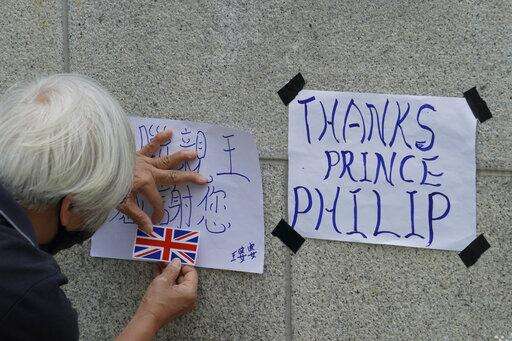 親王
謝您
王婆婆
THANKS
PRINCE
PHILIP